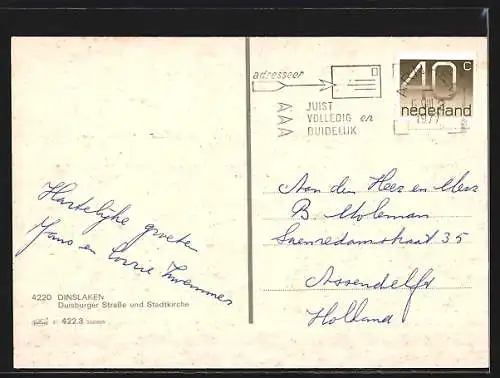 adresseer
JUIST
VOLLEDIG en
DUIDELIJK
40 c
nederland
1977
Aan den Heer en Mevr
B Moleman
Saenredamstraat 35
Assendelft
Holland
Hartelijke groeten
Hans en Corrie Zwemmer
4220 DINSLAKEN
Duisburger Straße und Stadtkirche
422.3